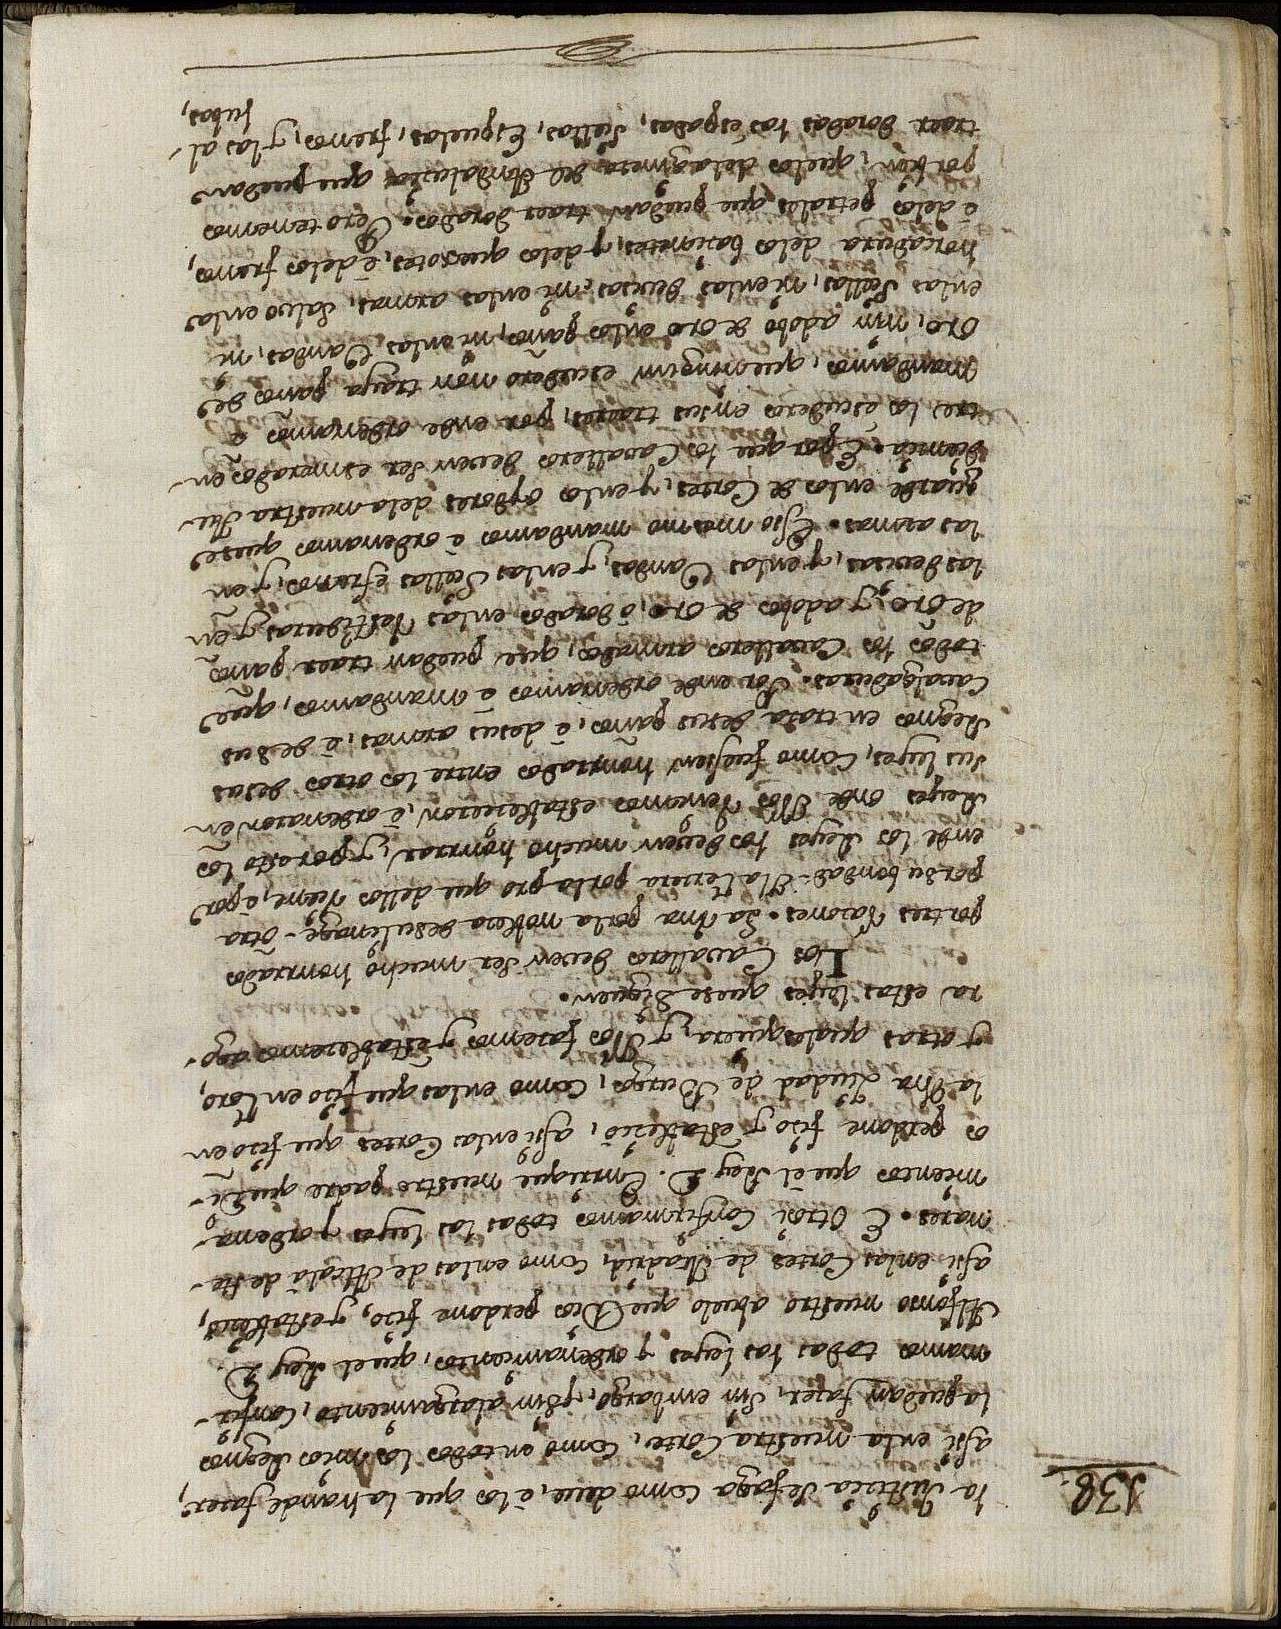 138.
la Justicia se faga como deue, è los que la han de facer,
assi enla nuestra Corte, como en todos los nros Regnos
la puedan facer, sin embargo, y sin alargamiento, Confir-
mamos todas las leyes y ordenamientos, que el Rey D.
Alfonso nuestro abuelo que Dios perdone fizo, y establecio,
assi enlas Cortes de Madrid, como enlas de Alcalà de He-
nares. E Otrosi Confirmamos todas las leyes y ordena-
mientos que èl Rey D. Enrrique nuestro padre que Di-
os perdone fizo y establecio, assi enlas Cortes que fizo en
la Mra Ziudad de Burgos, como enlas que fizo en Toro,
y otras qualesquiera, y Nos facemos y establecemos ago-
ra estas leyes que se siguen.
Los Cavalleros deven ser mucho honrrados
por tres Razones. La Vna por la nobleza de su linage - otra
por su bondad - Y la tercera por la pro que dellos viene, è por
ende los Reyes los deven mucho honrrar, y por esto los
Reyes onde Nos Venimos establecieron, è ordenaron en
sus leyes, Como fuessen honrrados entre los otros de sus
Regnos en traer de sus paños, è de sus armas, è de sus
Cavalgaduras. Por ende ordenamos è mandamos, que
todos los Cavalleros armados, que puedan traer paños
de oro, y adobos de oro, ò dorados enlas Vestiduras, y en
las devisas, y enlas Vandas, y enlas Siellas è frenos, y en
las armas. Esso mesmo mandamos è ordenamos que se
guarde enlos de Cortes, y enlos oydores dela nuestra Au-
diencia. E por que los Cavalleros deven ser esmerados en-
tre los escuderos en sus traeres, por ende ordenamos è
Mandamos, que ningun escudero non traya paños de
oro, nin adobo de oro enlos paños, ni enlas Vandas, ni
enlas Siellas, ni enlas devisas, ni enlas armas, salvo enla
horcadura delos bacinetes, y delos quexotes, è delos frenos,
è delos petrales que puedan traer dorados. Pero tenemos
por bien, que los dela gineta del Andalucia que puedan
traer doradas las espadas, Siellas, Espuelas, frenos, y las al-
jubas,